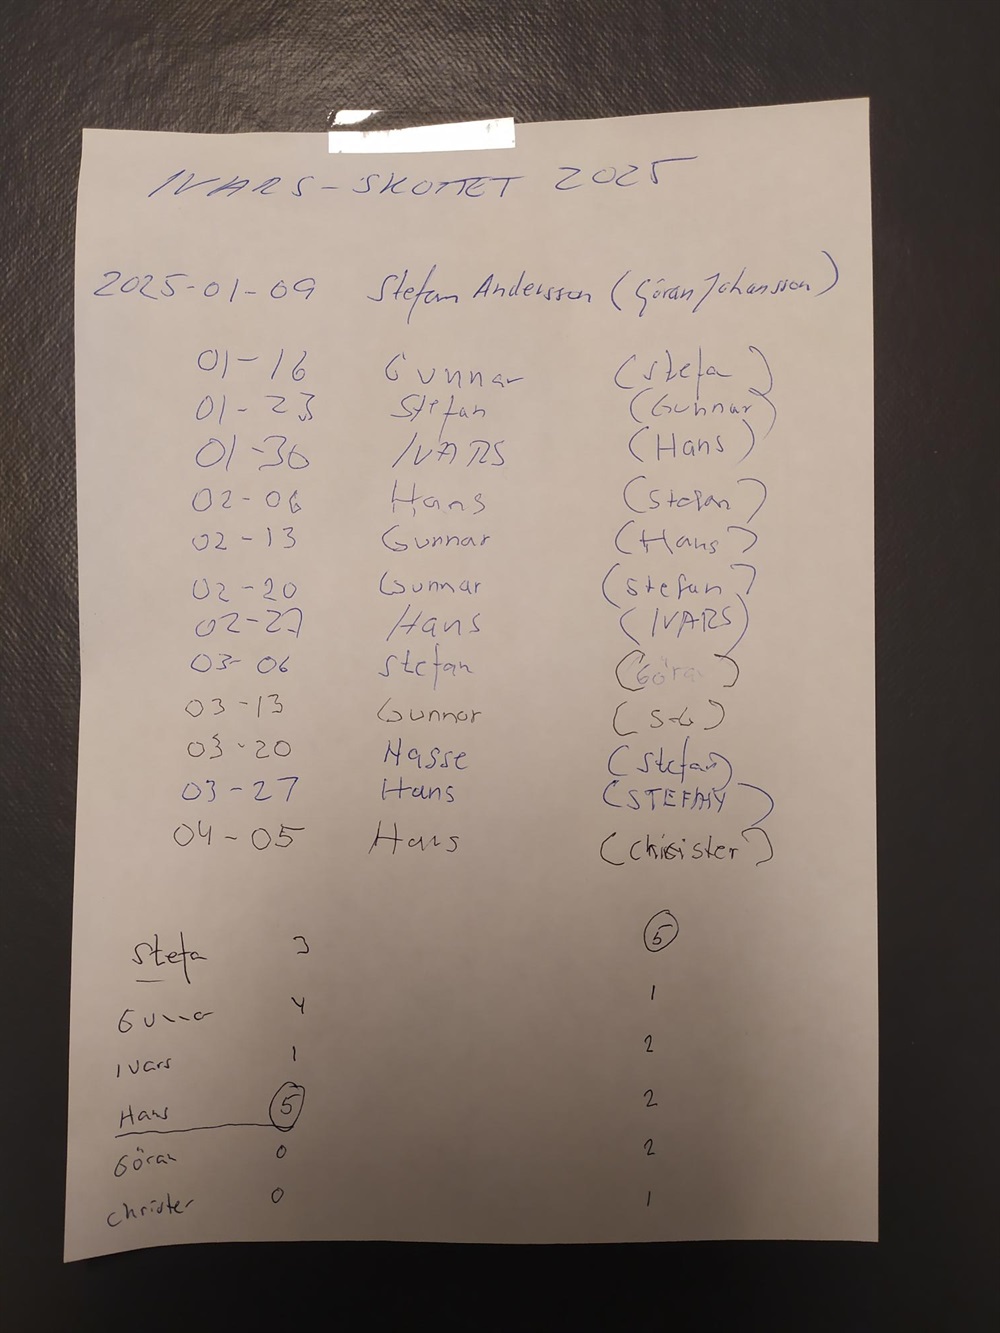 IVARS-SKOTTET 2025
2025-01-09 Stefan Andersson (Göran Johansson)
01-16 Gunnar (Stefa)
01-23 Stefan (Gunnar)
01-30 IVARS (Hans)
02-06 Hans (Stefan)
02-13 Gunnar (Hans)
02-20 Gunnar (Stefan)
02-27 Hans (IVARS)
03-06 Stefan (Göran)
03-13 Gunnar
03-20 Hasse (Stefan)
03-27 Hans
04-05 Hans (Christer)
Stefa 3 5
Gunnar 4 1
Ivars 1 2
Hans 5 2
Göran 0 2
Christer 0 1